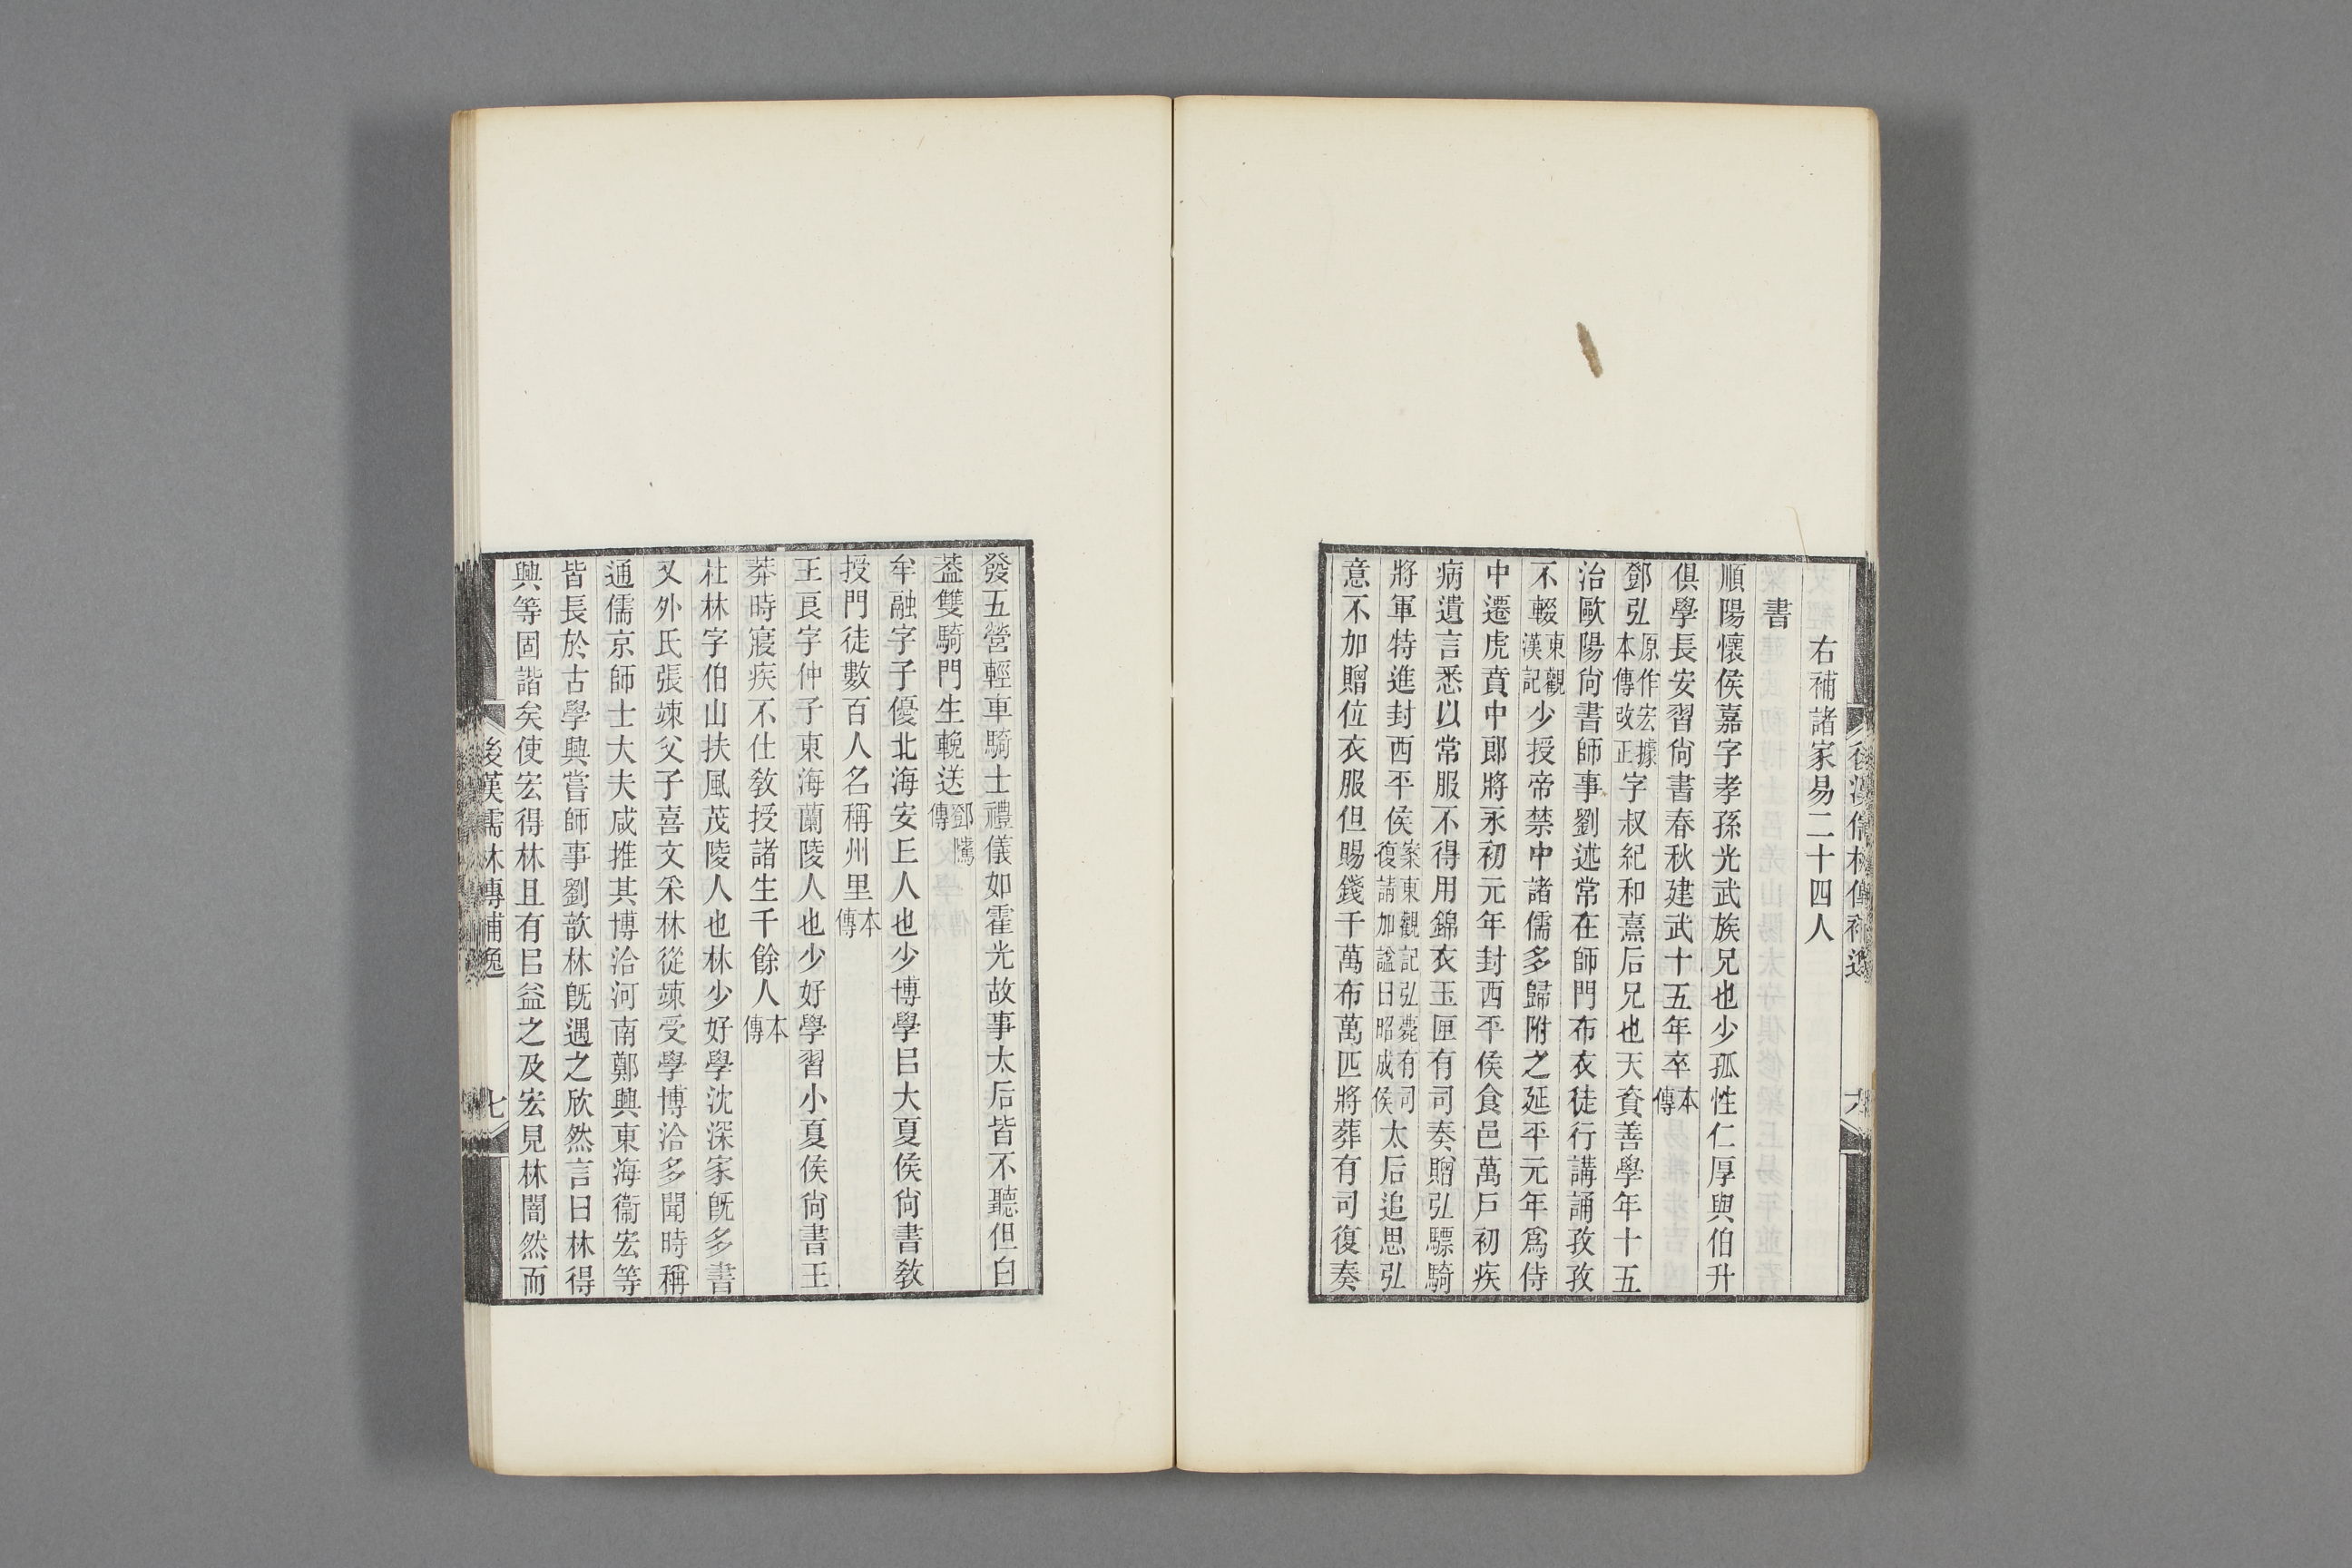 右補諸家易二十四人
書
順陽懷侯嘉字孝孫光武族兄也少孤性仁厚與伯升
俱學長安習尙書春秋建武十五年卒本傳
鄧弘原作宏據本傳改正字叔紀和熹后兄也天資善學年十五
治歐陽尙書師事劉述常在師門布衣徒行講誦孜孜
不輟東觀漢記少授帝禁中諸儒多歸附之延平元年爲侍
中遷虎賁中郎將永初元年封西平侯食邑萬戶初疾
病遺言悉以常服不得用錦衣玉匣有司奏贈弘驃騎
將軍特進封西平侯案東觀記弘薨有司復請加諡曰昭成侯太后追思弘
意不加贈位衣服但賜錢千萬布萬匹將葬有司復奏
後漢儒林傳補逸
六
發五營輕車騎士禮儀如霍光故事太后皆不聽但白
葢雙騎門生輓送鄧騭傳
牟融字子優北海安丘人也少博學㠯大夏侯尙書敎
授門徒數百人名稱州里本傳
王良字仲子東海蘭陵人也少好學習小夏侯尙書王
莽時寢疾不仕敎授諸生千餘人本傳
杜林字伯山扶風茂陵人也林少好學沈深家旣多書
又外氏張竦父子喜文采林從竦受學博洽多聞時稱
通儒京師士大夫咸推其博洽河南鄭興東海衞宏等
皆長於古學興嘗師事劉歆林旣遇之欣然言曰林得
興等固諧矣使宏得林且有㠯益之及宏見林闇然而
後漢儒林傳補逸
七